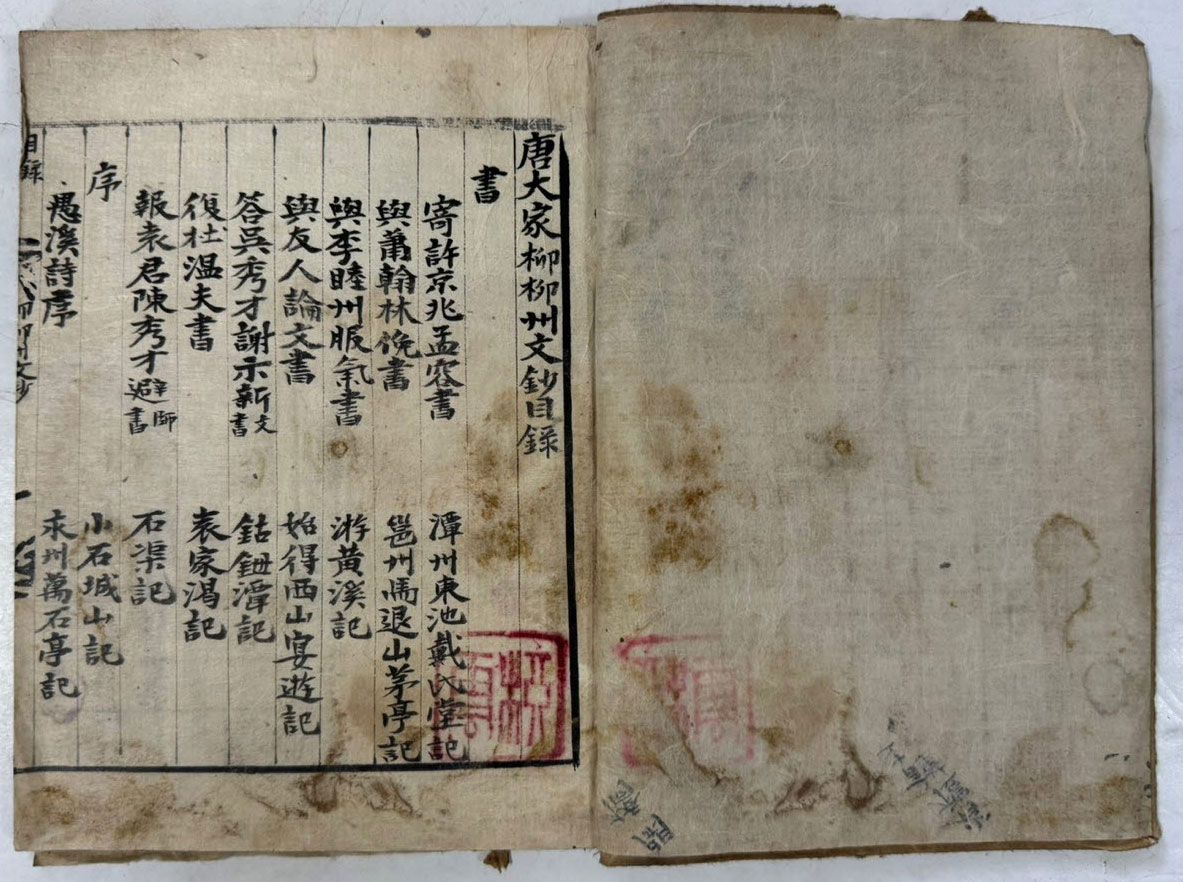 唐大家柳柳州文鈔目録
書
寄許京兆孟容書　潭州東池戴氏堂記
與蕭翰林俛書　邕州馬退山茅亭記
與李睦州服氣書　游黃溪記
與友人論文書　始得西山宴遊記
答吳秀才謝示新文書　鈷鉧潭記
復杜温夫書　袁家渴記
報袁君陳秀才避師書　石渠記
序　小石城山記
愚溪詩序　永州萬石亭記
目録